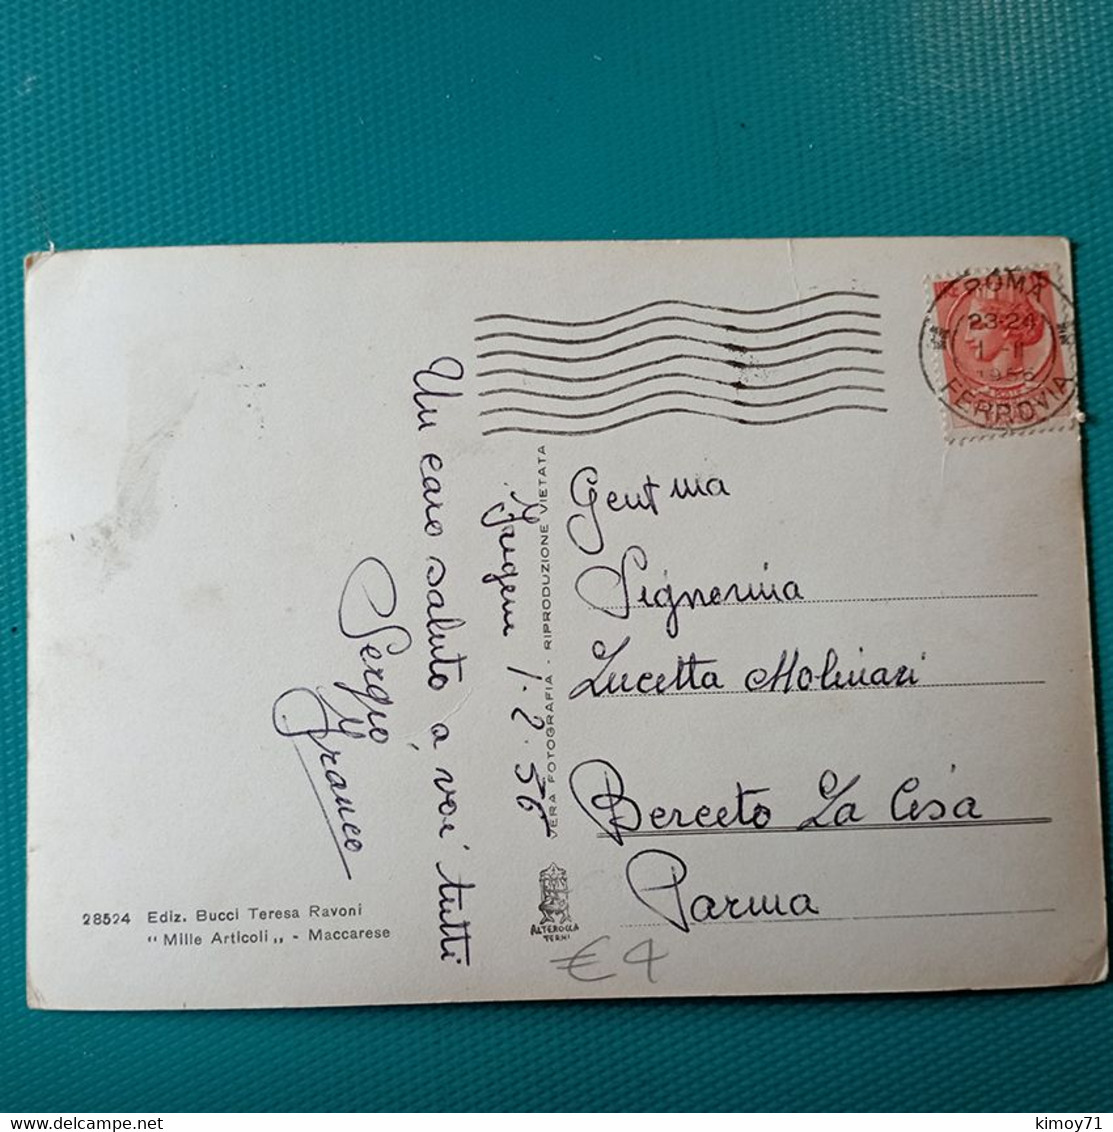 Un caro saluto a voi tutti
Sergio
Franco
1. 2. 56
VERA FOTOGRAFIA - RIPRODUZIONE VIETATA
ALTEROCCA
TERNI
28524 Ediz. Bucci Teresa Ravoni
"Mille Articoli" - Maccarese
ROMA
23-24
1956
FERROVIA
Gent ma
Signorina
Lucetta Molinari
Berceto La Cisa
Parma
€ 4
kimoy71